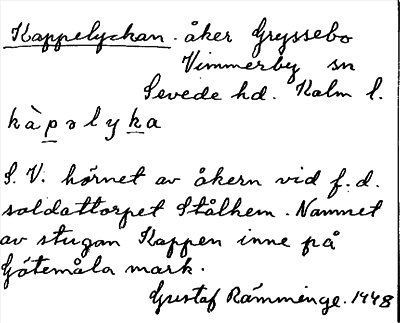 Kappelyckan. åker Gryssebo
Vimmerby sn
Sevede hd. Kalm l.
kàpəlyka
S.V. hörnet av åkern vid f.d.
soldattorpet Stålhem. Namnet
av stugan Kappen inne på
Götemåla mark.
Gustaf Rämminge. 1948